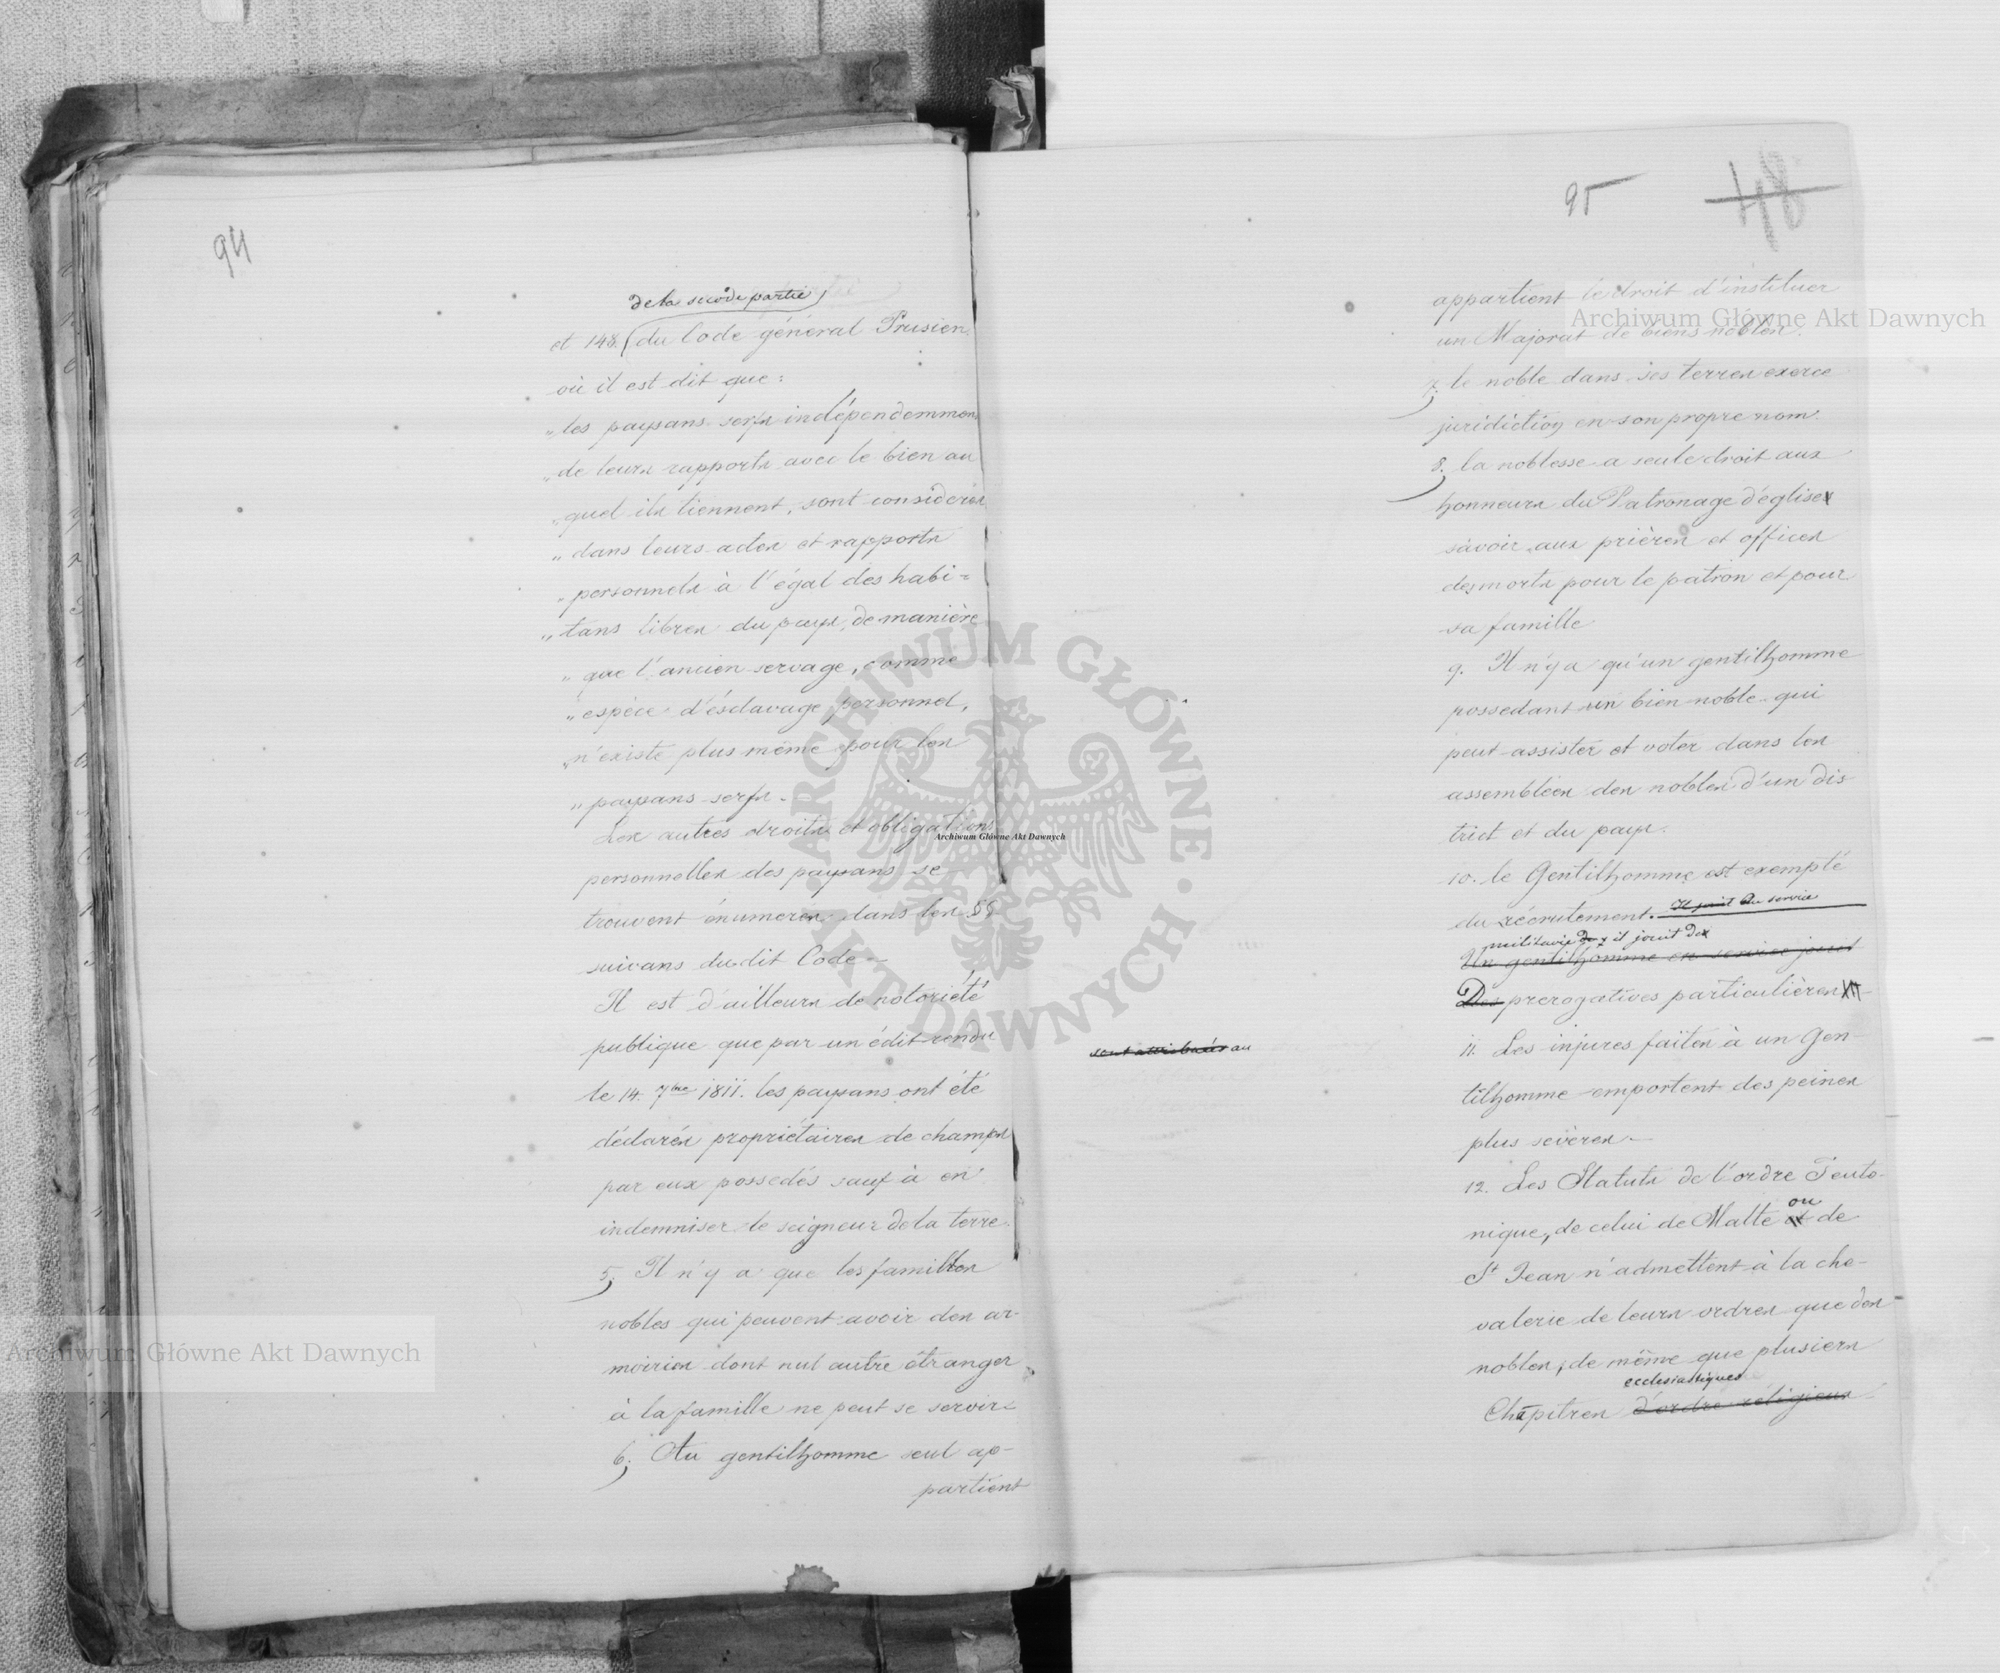 94
de la secode partie
et 148. du Code général Prusien
où il est dit que:
„les paysans serfs indépendemmen
„de leurs rapports avec le bien au
„quel ils tiennent, sont considerés
„dans leurs actes et rapports
„personnels à l'égal des habi=
„tans libres du pays, de manière
„que l'ancien servage, comme
„espèce d'ésclavage personnel,
„n'existe plus même pour les
„paysans serfs.
Les autres droits et obligations
personnelles des paysans se
trouvent énumeres dans les §§
suivans du dit Code.—
Il est d'ailleurs de notoriété
publique que par un édit rendu
le 14. 7bre 1811. les paysans ont été
déclarés propriétaires de champs
par eux possedés sauf à en
indemniser le seigneur de la terre.
5, Il n'y a que les familles
nobles qui peuvent avoir des ar-
moiries dont nul autre étranger
à la famille ne peut se servir.
6, Au gentilhomme seul ap-
partient
95 48
appartient le droit d'instituer
un Majorat de biens nobles.
7, le noble dans ses terres exerce
juridiction en son propre nom.
8, la noblesse a seule droit aux
honneurs du Patronage d'église
savoir aux prières et offices
des morts pour le patron et pour
sa famille
9. Il n'y a qu'un gentilhomme
possedant un bien noble qui
peut assister et voter dans les
assemblées des nobles d'un dis
trict et du pays.
10. le Gentilhomme est exempté
du récrutement. Il jouit Au service
militaire il jouit de
Un gentilhomme en service jouit
Des prerogatives particulières
sont attribués au
11. Les injures faites à un Gen-
tilhomme emportent des peines
plus sevères.—
12. Les Statuts de l'ordre Teuto-
nique, de celui de Malte et ou de
St Jean n'admettent à la che-
valerie de leurs ordres que des
nobles, de même que plusiers
ecclesiastiques
Chapitres d'ordre réligieux
Archiwum Główne Akt Dawnych
Archiwum Główne Akt Dawnych
Archiwum Główne Akt Dawnych
ARCHIWUM GŁÓWNE · AKT DAWNYCH ·